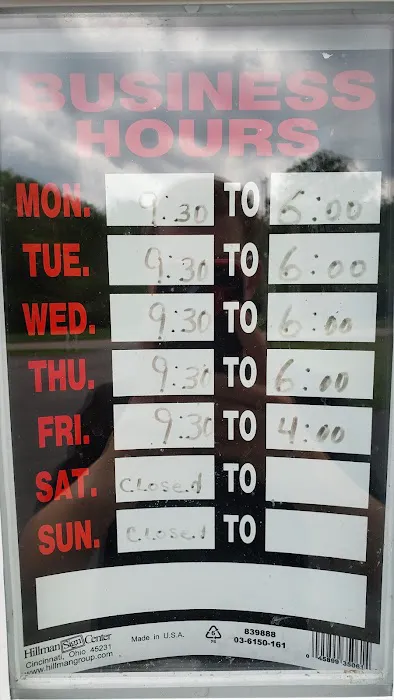 BUSINESS
HOURS
MON. 9:30 TO 6:00
TUE. 9:30 TO 6:00
WED. 9:30 TO 6:00
THU. 9:30 TO 6:00
FRI. 9:30 TO 4:00
SAT. CLosed TO
SUN. CLosed TO
Hillman Sign Center Made in U.S.A. 839888
Cincinnati, Ohio 45231 03-6150-161
www.hillmangroup.com